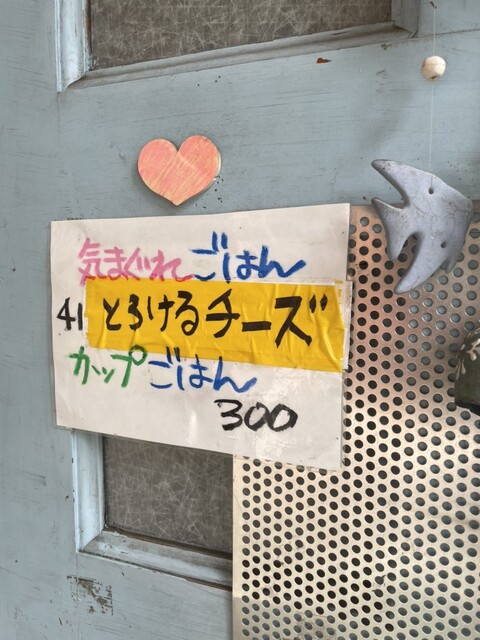 気まぐれごはん
41 とろけるチーズ
カップごはん
300